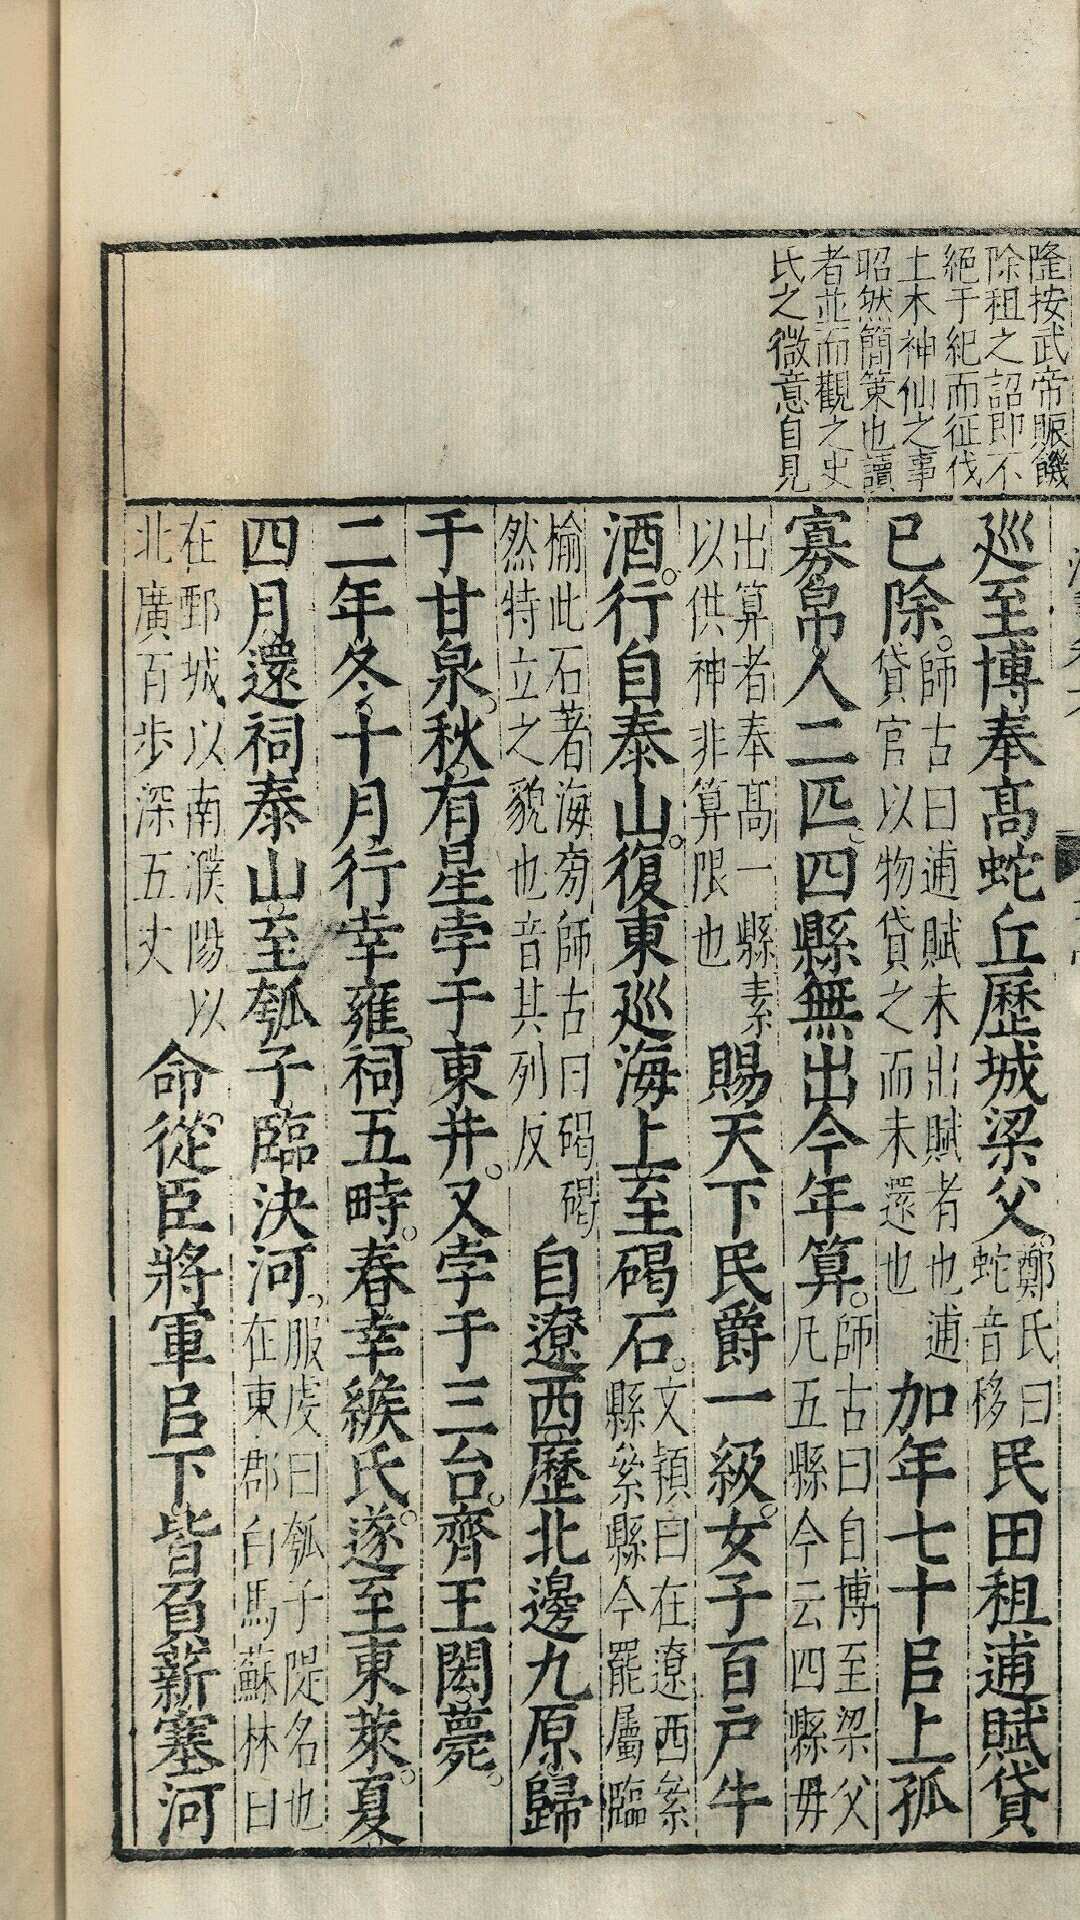 隆按武帝賑饑
除租之詔即不
絕于紀而征伐
土木神仙之事
昭然簡策也讀
者並而觀之史
氏之微意自見
巡至博奉高蛇丘歷城梁父。鄭氏曰蛇音移民田租逋賦貸
已除。師古曰逋賦未出賦者也逋貸官以物貸之而未還也加年七十㠯上孤
寡帛。人二匹。四縣無出今年算。師古曰自博至梁父凡五縣今云四縣毋
出算者奉高一縣素以供神非算限也賜天下民爵一級。女子百戶牛
酒。行自泰山。復東巡海上至碣石。文穎曰在遼西絫縣絫縣今罷屬臨
榆此石著海旁師古曰碣碣然特立之貌也音其列反自遼西歷北邊九原歸
于甘泉。秋。有星孛于東井。又孛于三台。齊王閎薨。
二年冬。十月行幸雍。祠五畤。春幸緱氏。遂至東萊。夏
四月。還祠泰山。至瓠子。臨決河。服虔曰瓠子隄名也在東郡白馬蘇林曰
在鄄城以南濮陽以北廣百步深五丈命從臣將軍㠯下。皆負薪塞河